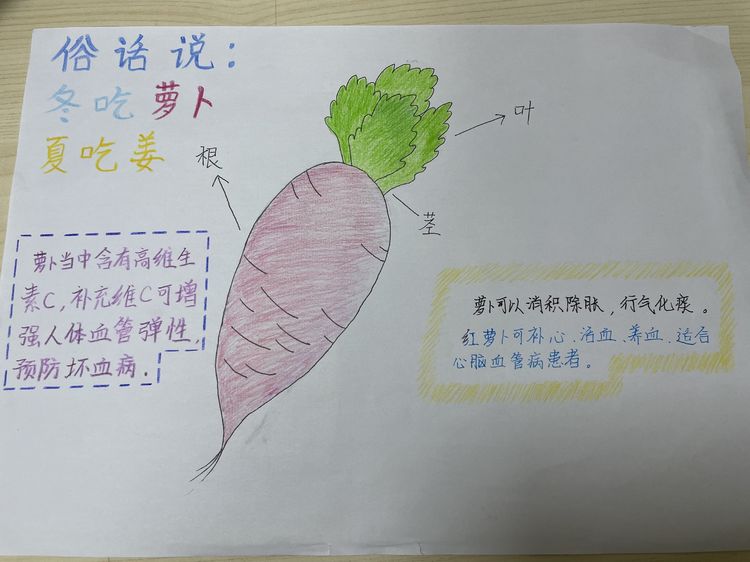 俗话说：
冬吃萝卜
夏吃姜
叶
根
茎
萝卜当中含有高维生
素C，补充维C可增
强人体血管弹性，
预防坏血病．
萝卜可以消积除胀，行气化痰。
红萝卜可补心、活血、养血、适合
心脑血管病患者。